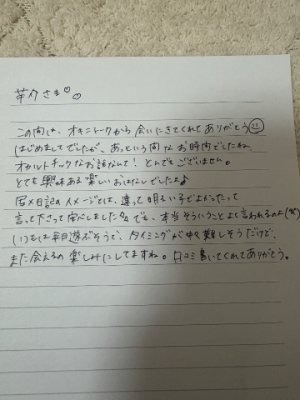 さま
この間は、オキニトークから会いにきてくれてありがとう
はじめましてでしたが、あっという間なお時間でしたね。
オカルトチックなお話なんて！とんでもございません。
とても興味ある楽しいおはなしでしたよ♪
写メ日記のイメージとは、違って明るい子でよかったって
言って下さって安心しました でも、本当そういうことよく言われるのよ(笑)
いつもは毎日遊ぶそうで、タイミングが中々難しそうだけど、
また会えるの楽しみにしてますね。口コミ書いてくれてありがとう。